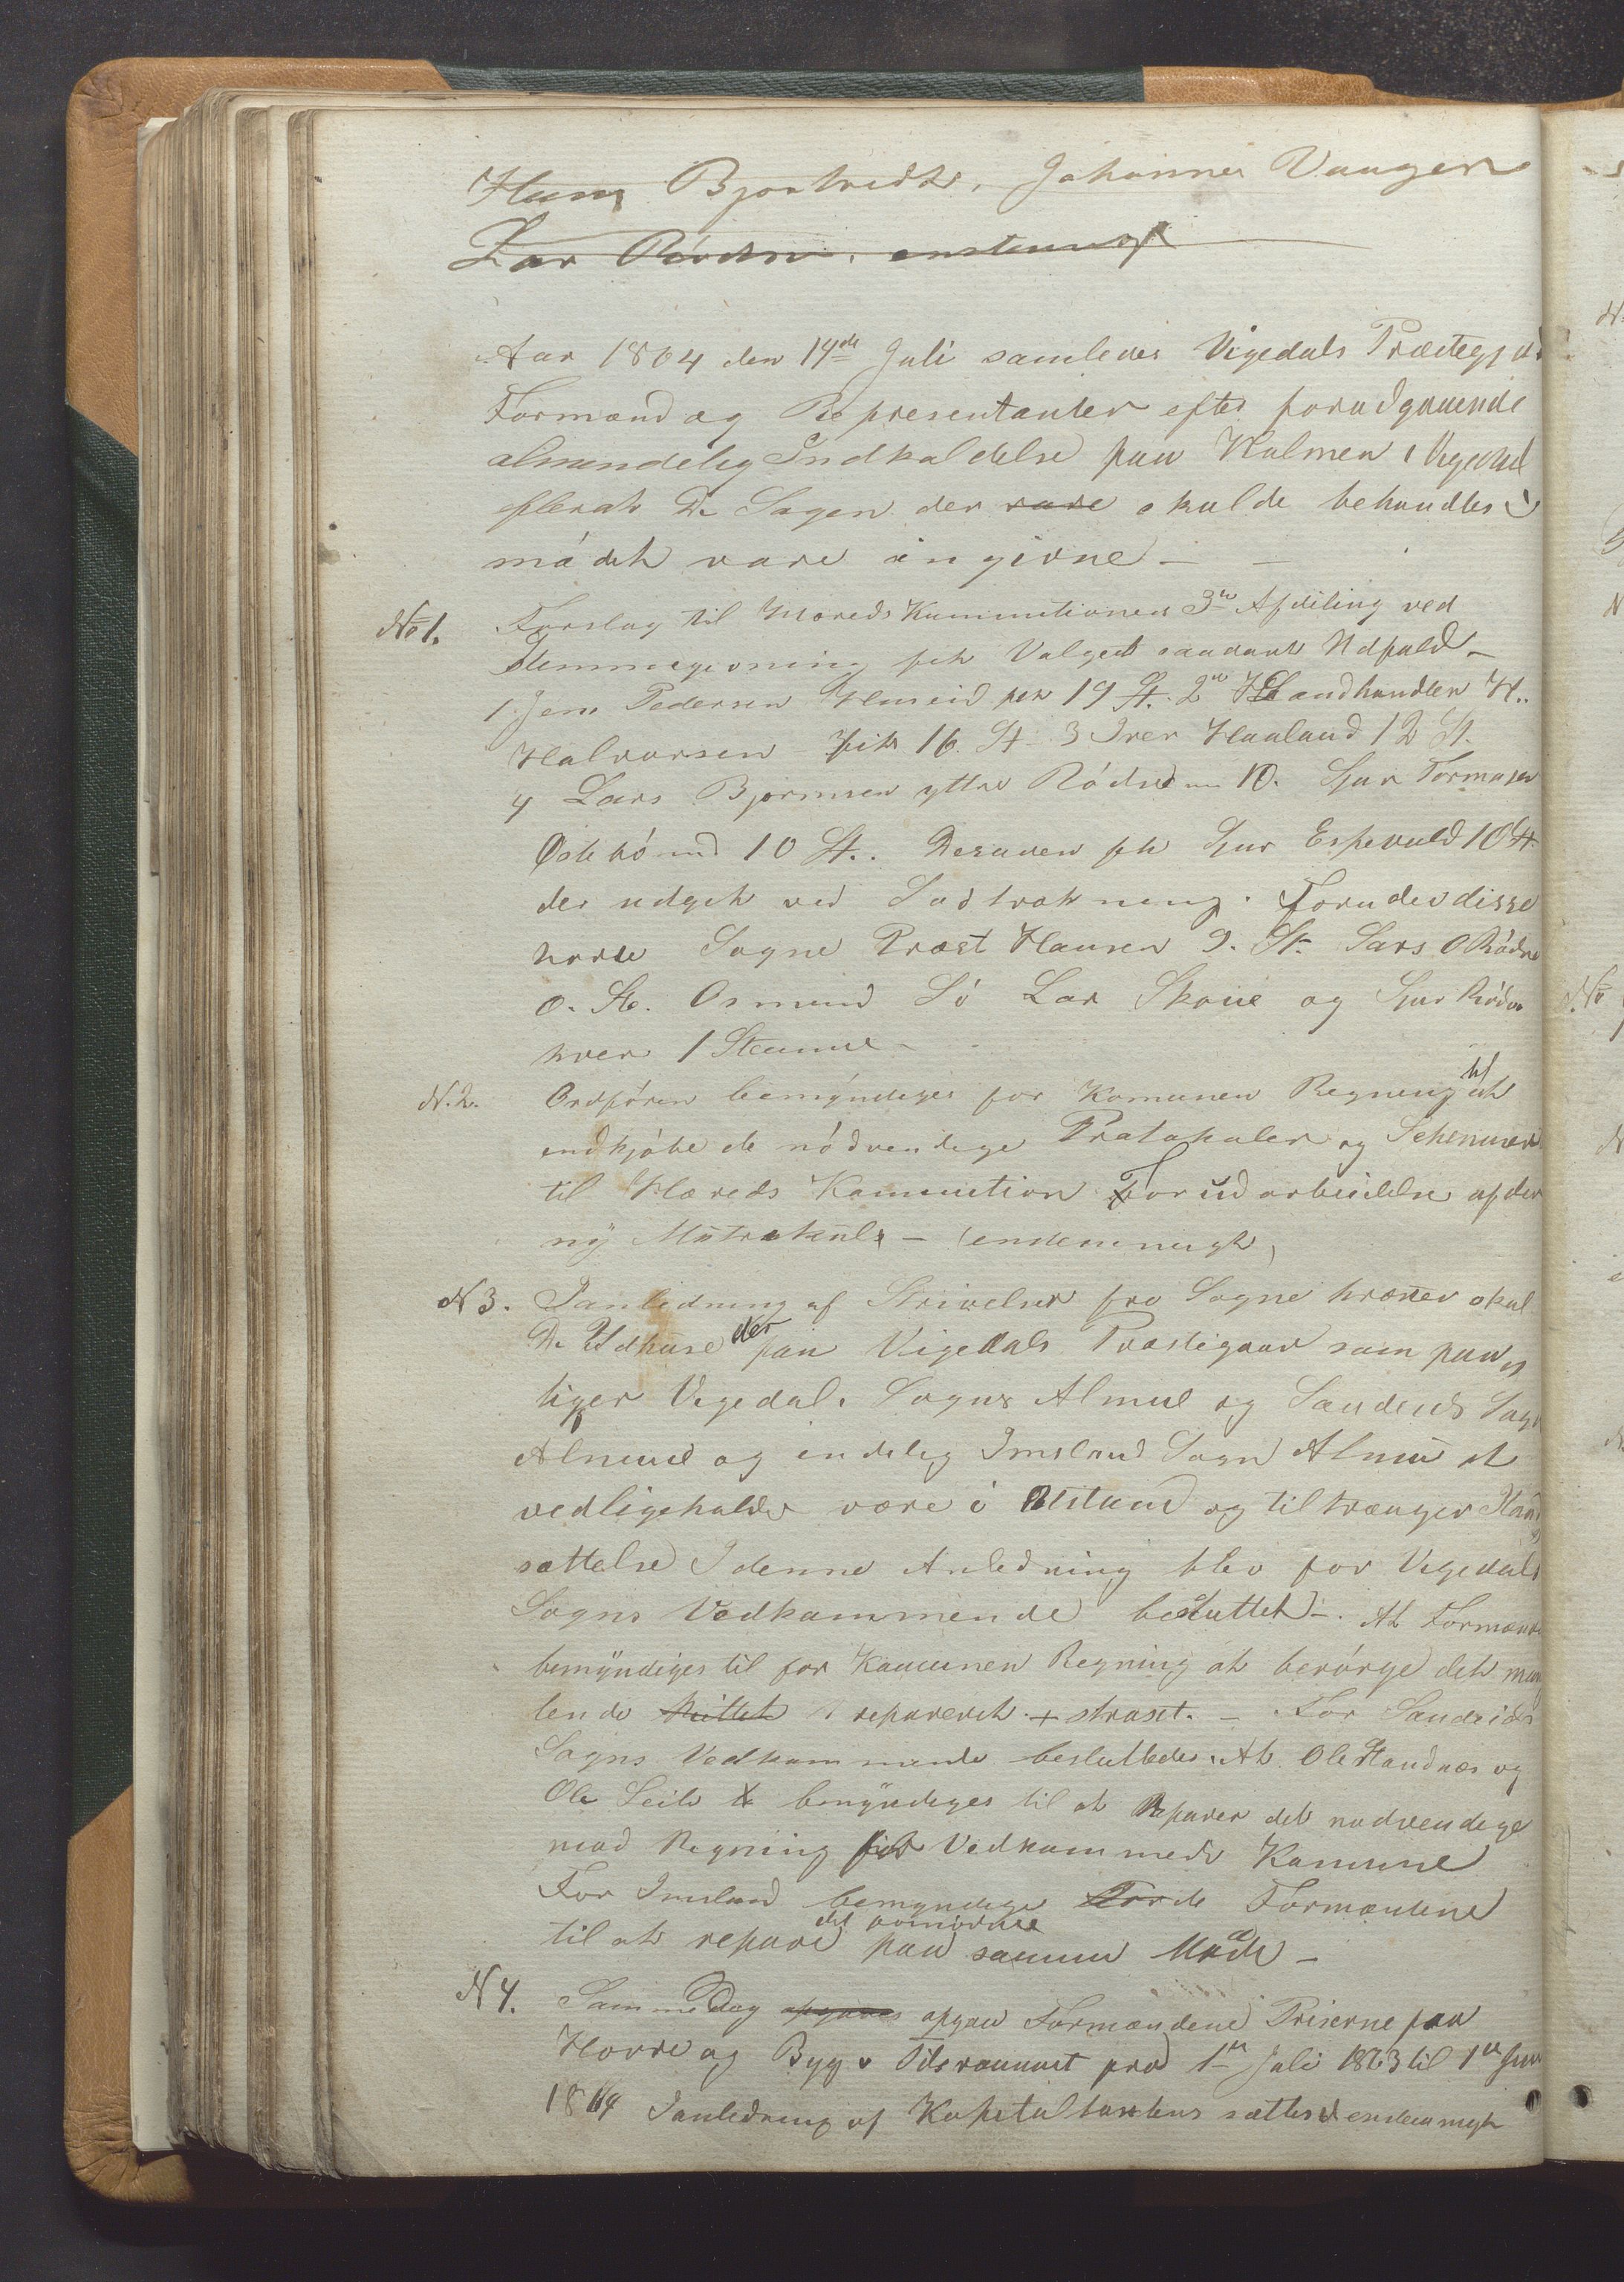 Hans Bjontvedt, Johannes Vaagen
Lar Rödne. enstemmigt
Aar 1864 den 14de Juli samledes Vigedals Præstegjæ
Formænd og Representanter efter forudgaaende
almindelig Indkaldelse paa Kalmen i Vigedal
De Sagen der vare skulde behandles i
mödet vare angivne –
No 1. Forslag til Hæreds Kummitionen 3de Afdiling ved
Stemmegivning fik Valget saadant Udfald –
1 Jens Pedersen Hmeid fik 19 St. 2de Landhandler H..
Halvorsen fik 16. St – 3 Iver Haaland 12 St.
4 Lars Bjørnsen yttre Rödne 10. Sjur Tormosen
Östebö 10 St.. Desuden fik Sjur Espevold 10 St
der udgik ved Lodtrækning. Foruden disse
havde Sogne Præst Hansen 9. St. Lars O Rödne
St. Osmund Lö Lar Skoue og Sjur Rödne
hver 1 Stemme –
N. 2. Ordfören bemÿndiges for Komunen Regning til at
indkjöbe de nödvendige Protokoler og Schemaer
til Hæreds Kommition For udarbeidelse af den
nÿ Matrikul – (enstemmigt)
N 3. I anledning af Skrivelser fra Sogne Præsten skal
De Udhuse der paa Vigedals Præstegaar som paa
liger Vigedals Sogns Almue og Sandeids Sogn
Almue og endelig Imsland Sogn Almue at
vedligeholde være i Ustand og tiltrænger Istand
sættelse I denne Anledning blev for Vigedals
Sogns Vedkammende besluttet –. At Formænd
bemÿndiges til for Kommunen Regning at besörge det man
lende reparerет + straxt. – For Sandeids
Sogns Vedkommende besluttedes. At Ole Handnæs og
Ole Leite bemÿndiges til at Reparer det nødvendige
mod Regning for Vedkommede Komune
For Imsland bemyndige de Formændene
til at repare det fornødne paa samme Maade –
N 4. Samme Dag afgaves afgav Formændene Priserne paa
Havre og Byg v Tidsrummet fra 1ste Juli 1863 til 1ste Juni
1864 I anledning af Kapitultaxtens sættes enstemmigt